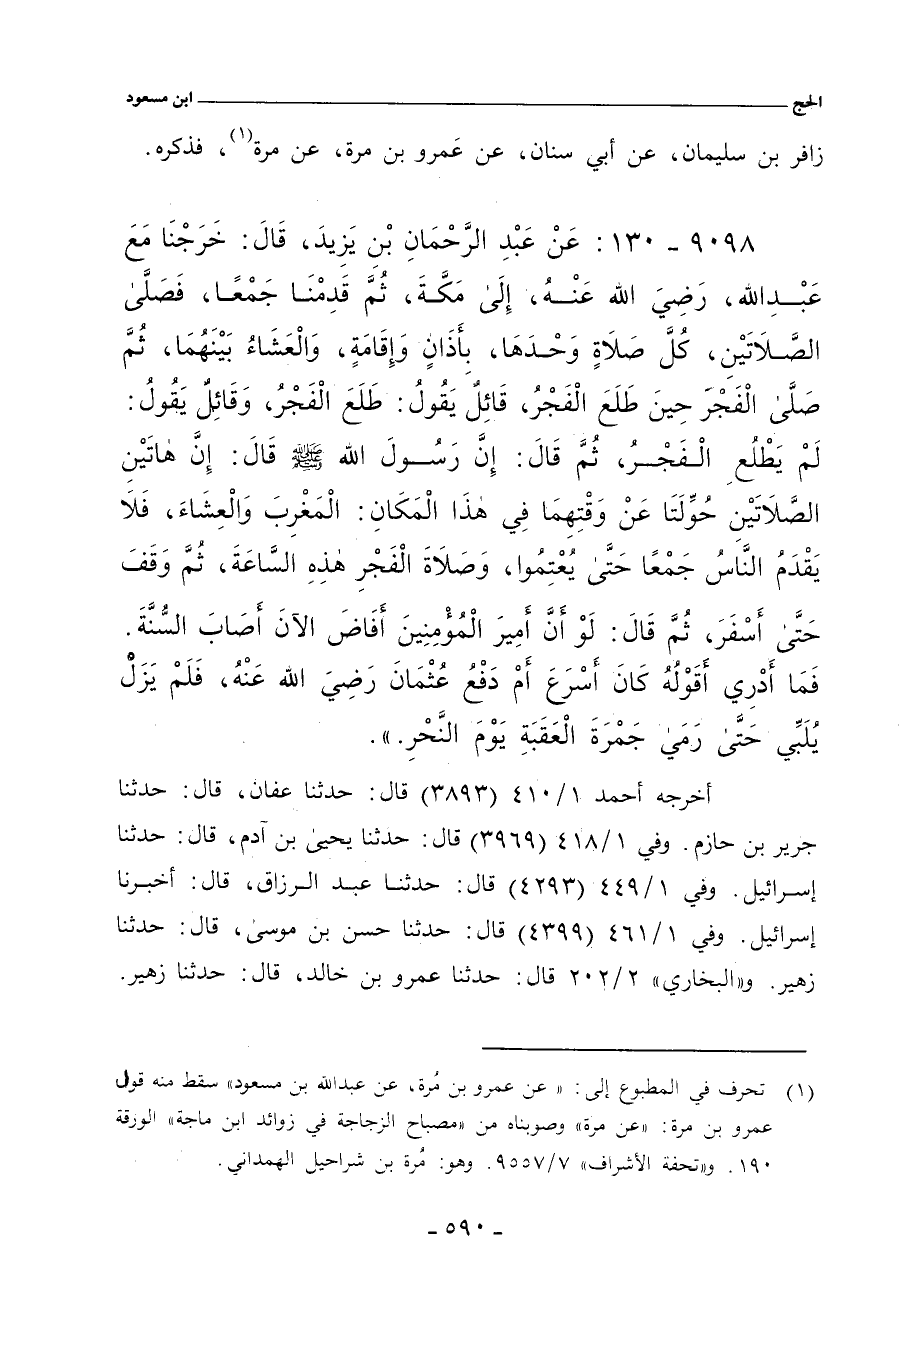 الحج ابن مسعود
زافر بن سليمان، عن أبي سنان، عن عَمرو بن مرة، عن مرة(١)، فذكره.
٩٠٩٨ ـ ١٣٠ : عَنْ عَبْدِ الرَّحْمَانِ بْنِ يَزِيدَ، قَالَ: خَرَجْنَا مَعَ
عَبْدِالله، رَضِيَ الله عَنْهُ، إِلَىٰ مَكَّةَ، ثُمَّ قَدِمْنَا جَمْعًا، فَصَلَّىٰ
الصَّلَاتَيْنِ، كُلَّ صَلَاةٍ وَحْدَهَا، بِأَذَانٍ وَإِقَامَةٍ، وَالْعَشَاءُ بَيْنَهُمَا، ثُمَّ
صَلَّىٰ الْفَجْرَ حِينَ طَلَعَ الْفَجْرُ، قَائِلٌ يَقُولُ: طَلَعَ الْفَجْرُ، وَقَائِلٌ يَقُولُ:
لَمْ يَطْلُعِ الْفَجْرُ، ثُمَّ قَالَ: إِنَّ رَسُولَ الله ﷺ قَالَ: إِنَّ هٰاتَيْنِ
الصَّلَاتَيْنِ حُوِّلَتَا عَنْ وَقْتِهِمَا فِي هٰذَا الْمَكَانِ: الْمَغْرِبَ وَالْعِشَاءَ، فَلَا
يَقْدَمُ النَّاسُ جَمْعًا حَتَّىٰ يُعْتِمُوا، وَصَلَاةَ الْفَجْرِ هٰذِهِ السَّاعَةَ، ثُمَّ وَقَفَ
حَتَّىٰ أَسْفَرَ، ثُمَّ قَالَ: لَوْ أَنَّ أَمِيرَ الْمُؤْمِنِينَ أَفَاضَ الآنَ أَصَابَ السُّنَّةَ.
فَمَا أَدْرِي أَقَوْلُهُ كَانَ أَسْرَعَ أَمْ دَفْعُ عُثْمَانَ رَضِيَ الله عَنْهُ، فَلَمْ يَزَلْ
يُلَبِّي حَتَّىٰ رَمَىٰ جَمْرَةَ الْعَقَبَةِ يَوْمَ النَّحْرِ.».
أخرجه أحمد ٤١٠/١ (٣٨٩٣) قال: حدثنا عفان، قال: حدثنا
جرير بن حازم. وفي ٤١٨/١ (٣٩٦٩) قال: حدثنا يحيىٰ بن آدم، قال: حدثنا
إسرائيل. وفي ٤٤٩/١ (٤٢٩٣) قال: حدثنا عبد الرزاق، قال: أخبرنا
إسرائيل. وفي ٤٦١/١ (٤٣٩٩) قال: حدثنا حسن بن موسىٰ، قال: حدثنا
زهير. و«البخاري» ٢٠٢/٢ قال: حدثنا عمرو بن خالد، قال: حدثنا زهير.
(١) تحرف في المطبوع إلى: « عن عمرو بن مُرة، عن عبدالله بن مسعود» سقط منه قول
عمرو بن مرة: «عن مرة» وصوبناه من «مصباح الزجاجة في زوائد ابن ماجة» الورقة
١٩٠. و«تحفة الأشراف» ٩٥٥٧/٧. وهو: مُرة بن شراحيل الهمداني.
ـ ٥٩٠ ـ